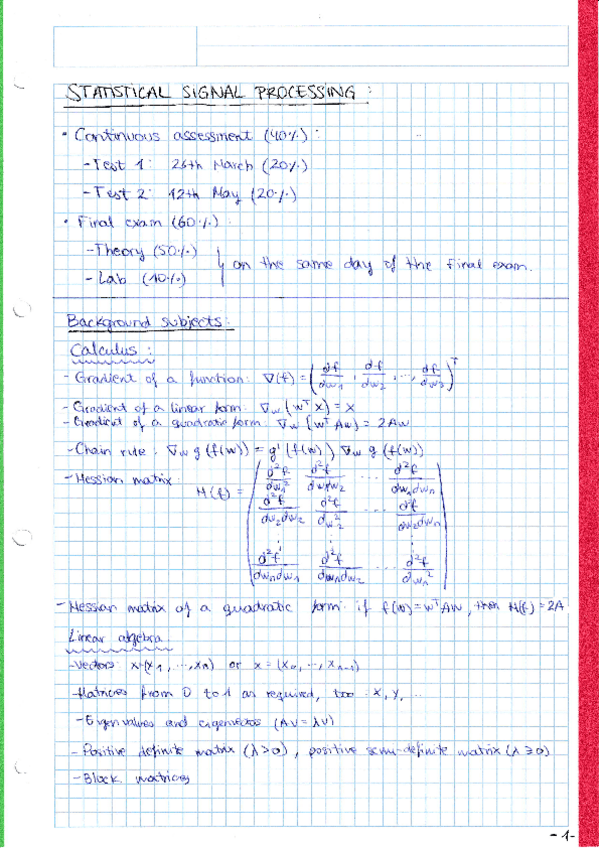 STATISTICAL SIGNAL PROCESSING :
• Continuous assessment (40%) :
- Test 1 : 26th March (20%)
- Test 2 : 12th May (20%)
• Final exam (60%) .
- Theory (50%)
- Lab (10%) } on the same day of the final exam.
Background subjects :
Calculus :
- Gradient of a function: ∇(f) = (df/dw1, df/dw2, ..., df/dw2)^T
- Gradient of a linear form: ∇w (w^T x) = x
- Gradient of a quadratic form: ∇w (w^T Aw) = 2Aw
- Chain rule : ∇w g (f(w)) = g' (f(w)) ∇w g (f(w))
- Hessian matrix :
H(f) = ( d²f/dw1² d²f/dw1dw2 ... d²f/dw1dwn
d²f/dw2dw2 d²f/dw2² ... d²f/dw2dwn
⋮ ⋮ ⋮
d²f/dwndw1 d²f/dwndw2 ... d²f/dwn² )
- Hessian matrix of a quadratic form: if f(w) = w^T Aw, then H(f) = 2A
Linear algebra :
- Vectors: x=(x1, ..., xn) or x = (x0, ..., xn-1)
- Matrices from 0 to 1 as required, too : X, Y, ...
- Eigenvalues and eigenvectors (Av = λv)
- Positive definite matrix (λ>0), positive semi-definite matrix (λ≥0)
- Block matrices
-1-